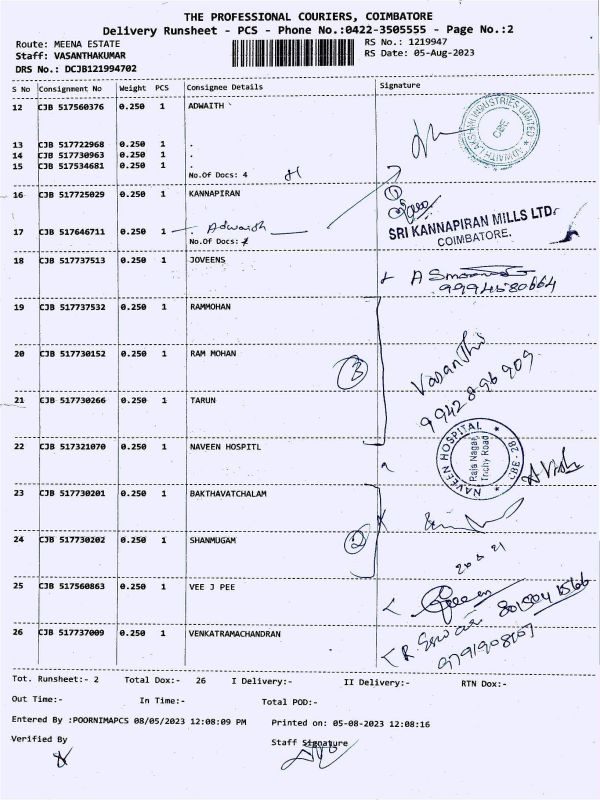 THE PROFESSIONAL COURIERS, COIMBATORE
Delivery Runsheet - PCS - Phone No.:0422-3505555 - Page No.:2
Route: MEENA ESTATE RS No.: 1219947
Staff: VASANTHAKUMAR RS Date: 05-Aug-2023
DRS No.: DCJB121994702
S No Consignment No Weight PCS Consignee Details Signature
12 CJB 517560376 0.250 1 ADWAITH
ADWAITH LAKSHMI INDUSTRIES LIMITED
CBE
13 CJB 517722968 0.250 1 .
14 CJB 517730963 0.250 1 .
15 CJB 517534681 0.250 1 .
No.Of Docs: 4
16 CJB 517725029 0.250 1 KANNAPIRAN
1
SRI KANNAPIRAN MILLS LTD.
COIMBATORE.
17 CJB 517646711 0.250 1 . Adwaith
No.Of Docs:
18 CJB 517737513 0.250 1 JOVEENS
9994580664
19 CJB 517737532 0.250 1 RAMMOHAN
20 CJB 517730152 0.250 1 RAM MOHAN
3
Vasantha
9942896909
21 CJB 517730266 0.250 1 TARUN
22 CJB 517321070 0.250 1 NAVEEN HOSPITL
NAVEEN HOSPITAL
Raja Nagar,
Trichy Road
23 CJB 517730201 0.250 1 BAKTHAVATCHALAM
24 CJB 517730202 0.250 1 SHANMUGAM
2
25 CJB 517560863 0.250 1 VEE J PEE
26 CJB 517737009 0.250 1 VENKATRAMACHANDRAN
Tot. Runsheet:- 2 Total Dox:- 26 I Delivery:- II Delivery:- RTN Dox:-
Out Time:- In Time:- Total POD:-
Entered By :POORNIMAPCS 08/05/2023 12:08:09 PM Printed on: 05-08-2023 12:08:16
Verified By Staff Signature